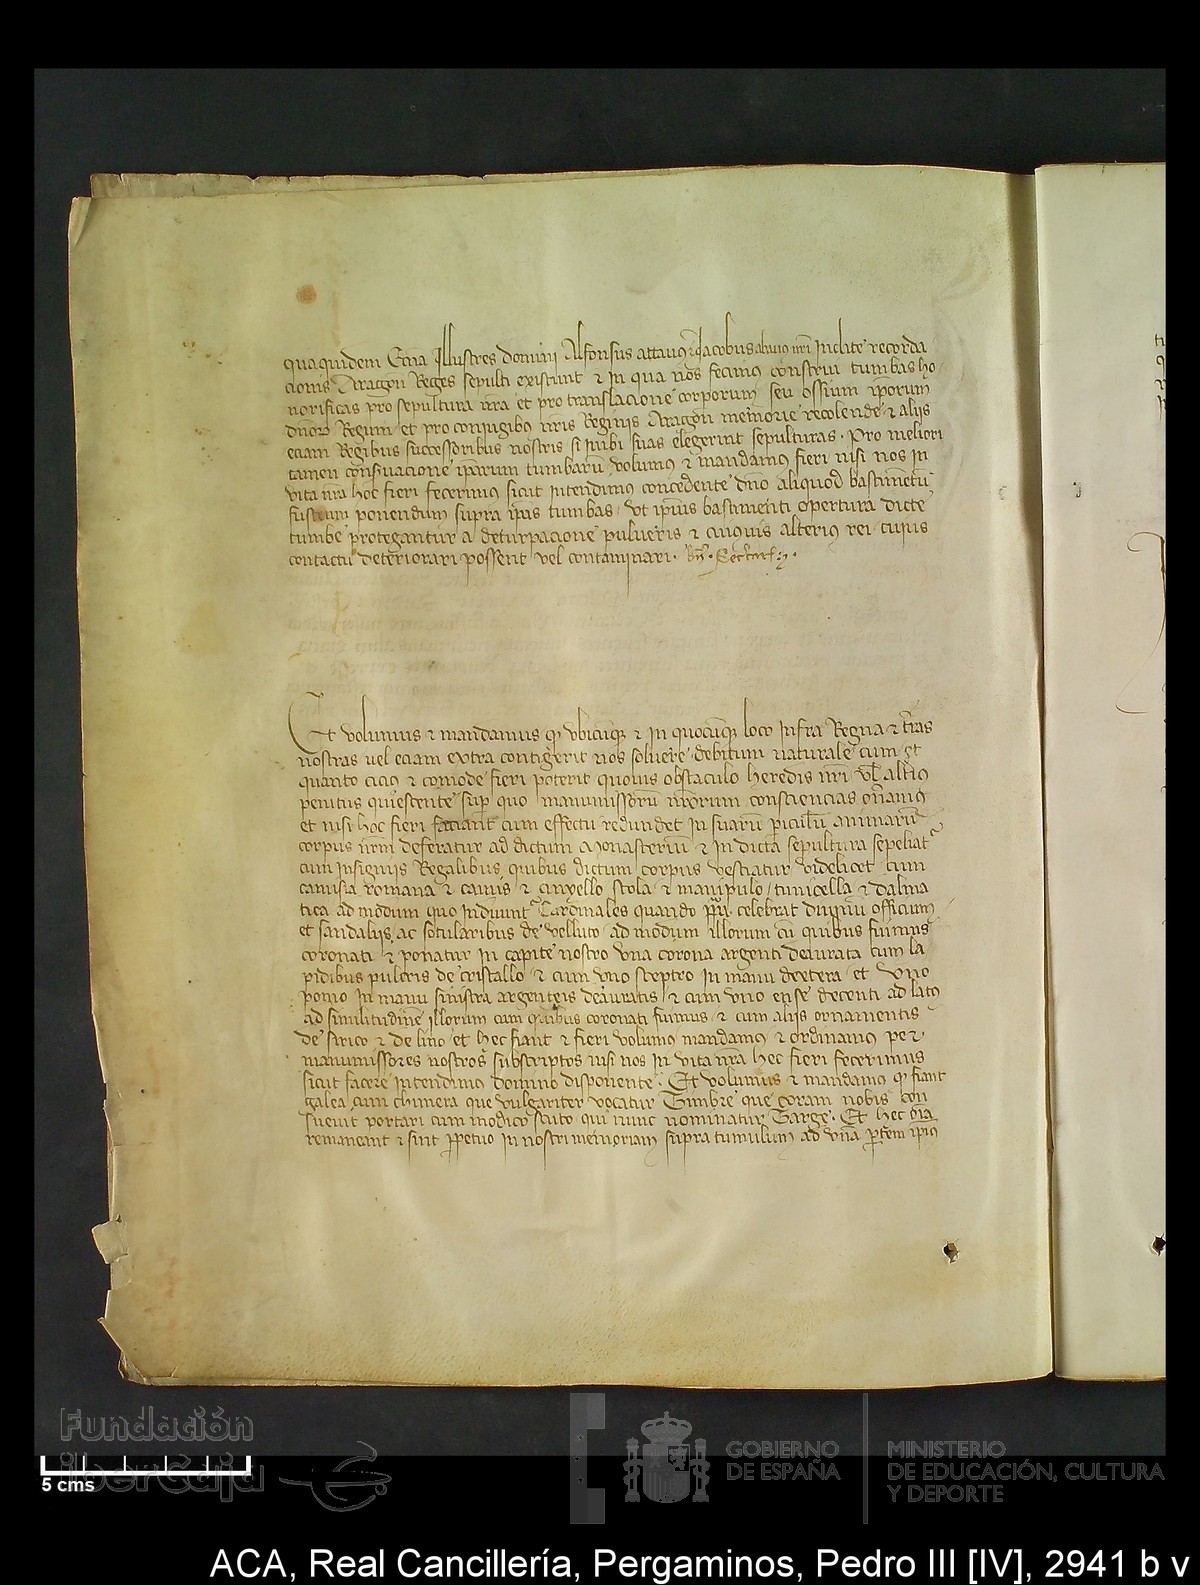 qua quidem Eccia Illustres domini Alfonsus attavus & Jacobus abavus nri Inclite recorda
cionis Aragon Reges sepulti existunt & in qua nos fecimus construi tumbas ho
norificas pro sepultura nra et pro translacione corporum seu ossium iporum
dnor Regum et pro conjugibus nris Reginis Aragon memorie recolende & aliis
eciam Regibus successoribus nostris si inibi suas elegerint sepulturas. Pro meliori
tamen conservacione iparum tumbarum volumus & mandamus fieri nisi nos in
vita nra hoc fieri fecerimus sicut intendimus concedente dno aliquod bastimentu
fusteum ponendum supra ipas tumbas. Ut ipius bastimenti opertura dicte
tumbe protegantur a deturpacione pulveris & cuiquis alterius rei cujus
contactu deteriorari possent vel contaminari.
Et volumus & mandamus q ubicumq & in quocumq loco infra Regna & tras
nostras vel eciam extra contigerit nos solvere debitum naturale cum et
quanto cicius & comode fieri poterit quovis obstaculo heredis nri vl altius
penitus quiescente sup quo manumissoru nrorum consciencias oneramus
et nisi hoc fieri faciant cum effectu redundet in suaru piculu animaru
corpus nrm deferatur ad dictum Monasteriu & in dicta sepultura sepeliat
cum insigniis Regalibus quibus dictum corpus vestiatur videlicet cum
camisia romana & camis & cinyello stola & manipulo, tunicella & dalma
tica ad modum quo induunt Cardinales quando ppa celebrat divinu officium
et sandaliis ac sotularibus de velluto ad modum illorum cu quibus fuimus
coronati & ponatur in capite nostro una corona argenti deaurata cum la
pidibus pulcris de cristallo & cum uno sceptro in manu dextera et uno
pomo in manu sinistra argenteis deauratis & cum uno ense decenti ad latus
ad similitudine illorum cum quibus coronati fuimus & cum aliis ornamentis
de sirico & de lino et hec fiant & fieri volumus mandamus & ordinamus per
manumissores nostros subscriptos nisi nos in vita nra hec fieri fecerimus
sicut facere intendimus domino disponente. Et volumus & mandamus q fiant
galea cum chimera que vulgariter vocatur Timbre que coram nobis con
suevit portari cum modico scuto qui nunc nominatur Targe. Et hec oia
remaneant & sint ppetuo in nostri memoriam supra tumulum ad una ptem ipius
5 cms
Fundación
iberCaja
GOBIERNO
DE ESPAÑA
MINISTERIO
DE EDUCACIÓN, CULTURA
Y DEPORTE
ACA, Real Cancillería, Pergaminos, Pedro III [IV], 2941 b v